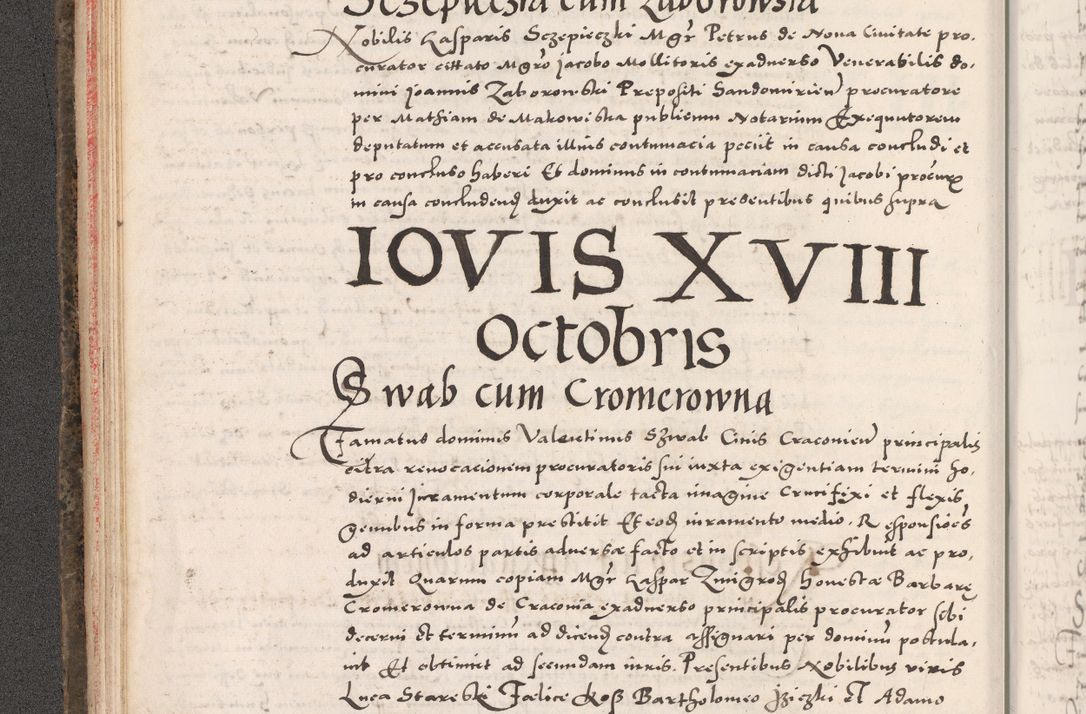 Sczepieczki cum Zaborowski
Nobilis Kasparis Sczepieczki Mgr Petrus de Nova Civitate pro,
curator cittato Mgro Jacobo Mollitoris exadverso Venerabilis do,
mini Joannis Zaborowski Prepositi Sandomirien procuratore
per Mathiam de Makowiska publicum Notarium Exequutorem
deputatum et accusata illius contumacia petiit in causa concludi et
pro concluso haberi Et dominus in contumaciam dicti Jacobi procur
in causa concludend duxit ac conclusit presentibus quibus supra
IOVIS XVIII
Octobris
Swab cum Cromerowna
Famatus dominus Valentinus Szwab Civis Cracovien principalis
citra revocacionem procuratoris sui iuxta exigentiam termini ho,
dierni Juramentum corporale tacta imagine Crucifixi et flexis
genubus in forma prestitit Et eod iuramento medio. Responsiões
ad articulos partis adversæ facto et in scriptis exhibuit ac pro,
duxit Quarum copiam Mgr Kaspar Zmigrod honestæ Barbarę
Cromerowna de Cracovia exadverso principalis procurator sibi
decerni Et terminũ ad dicend contra assignari per dominũ postula,
vit Et obtinuit ad secundam iuris. Presentibus Nobilibus viris
Luca Stareski Fælice Koss Bartholomeo et Adamo